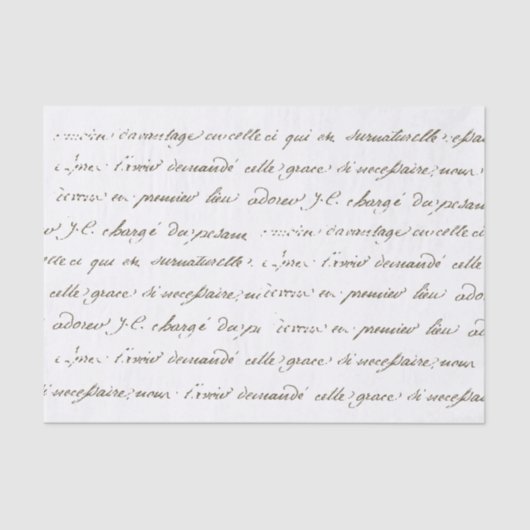 davantage en celle ci qui est surnaturelle
demandé cette grace si necessaire, nous
en premier lieu adorer J.C. chargé du pesam
J.C. chargé du pesam davantage en celle ci
celle ci qui est surnaturelle demandé cette
cette grace si necessaire, en premier lieu ado
adorer J.C. chargé du pe en premier lieu ad
demandé cette grace si necessaire, nous
si necessaire, nous demandé cette grace si necessai